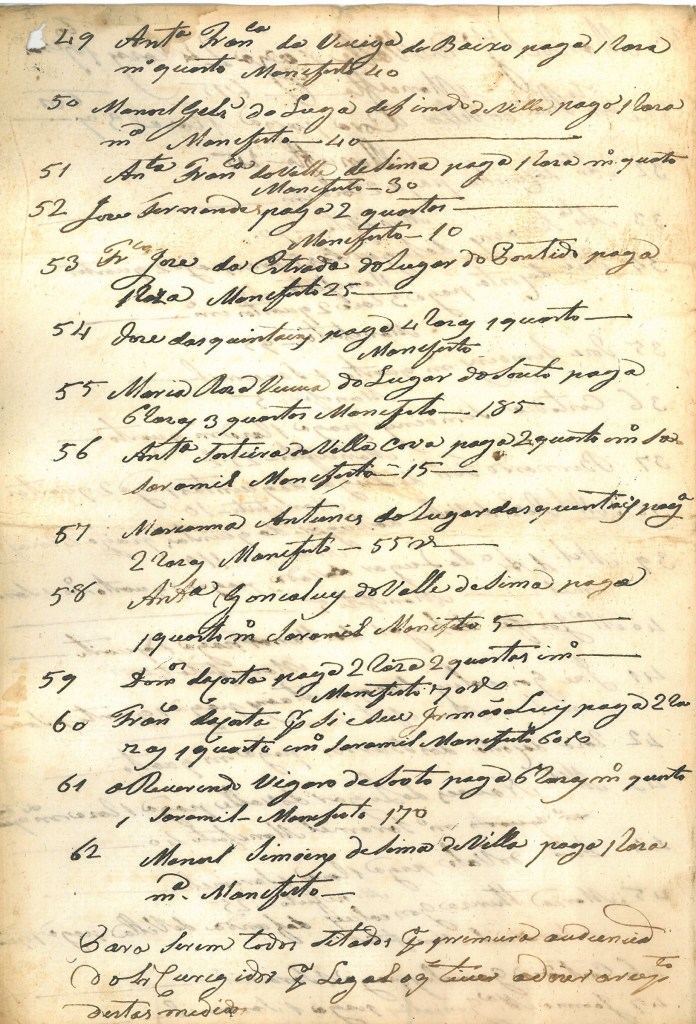 49 Antª Franca da Veeiga de Baixo paga 1 Rara
mº quarto Manefesto 40
50 Manoel Gelz do Luga defimdo de Villa pago 1 Rara
mº Manefesto 40
51 Anta Franca do Valle de Sima paga 1 Rara mº quato
Manefesto 30
52 Joze Fernandes paga 2 quartos
Manefesto 10
53 Frco Joze da Estrada do Lugar do Bontido paga
1 Raza Manefesto 25
54 Joze das quintaiz paga 4 Razas 1 quarto
Manefesto
55 Maria Roza Viuva do Lugar do Souto paga
6 Razas 3 quartos Manefesto 185
56 Antª de Villa Cova paga 2 quarto
Saramil Manefesto 15
57 Marianna Antunes do Lugar das quintais paga
2 Razas Manefesto 55 rs
58 Antª Goncalvez do Valle de Sima paga
1 quarto mº Saramil Manefesto 5
59 Domos da Costa paga 2 Raza 2 quartas i mº
Manefesto 70 rs
60 Franco da Costa p Si e Seu Irmão Luiz paga 2 Ra
zas 1 quarto i mº Saramil Manefesto 60 rs
61 o Reverendo Vigaro de Souto paga 6 Razas mº quarto
1 Saramil Manefesto 170
62 Manoel Simoens de Sima de Villa paga 1 Rara
mª Manefesto
Para Serem todos Sitados pª primeira audiencia
do Sr Curegidor
destas medidas